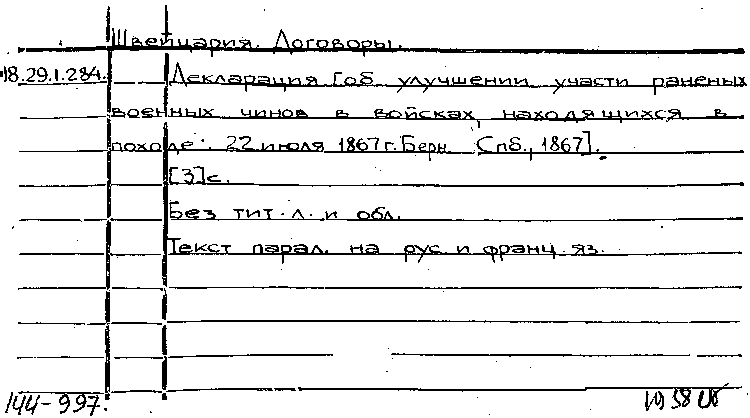 Швейцария. Договоры.
18.29.1.284. Декларация [об улучшении участи раненых
военных чинов в войсках, находящихся в
походе. 22 июля 1867 г. Берн. Спб., 1867].
[3]с.
Без тит. л. и обл.
Текст парал. на рус. и франц. яз.
144-997.